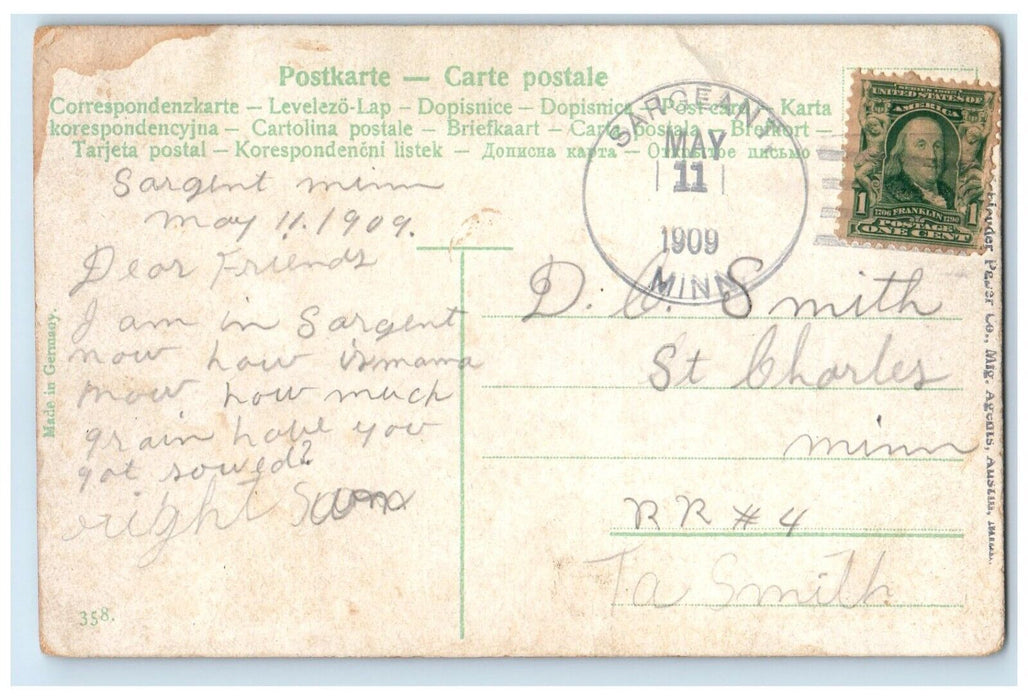 Postkarte — Carte postale
Correspondenzkarte – Levelező-Lap – Dopisnice – Dopisnica – Post card – Karta
korespondencyjna – Cartolina postale – Briefkaart – Carta postala – Brefkort –
Tarjeta postal – Korespondenční listek – Дописна карта – Открытое письмо
SARGEANT
MAY
11
1909
MINN
UNITED STATES OF
AMERICA
1 1
1706 FRANKLIN 1790
POSTAGE
ONE CENT
Sargent minn
May 11. 1909.
Dear Friends
I am in Sargent
now how is mama
now how much
grain have you
got sowed?
right Sam
D. C. Smith
St Charles
minn
RR # 4
Ta Smith
Made in Germany.
Paper Co., Mfg. Agents, Austin, Minn.
358.